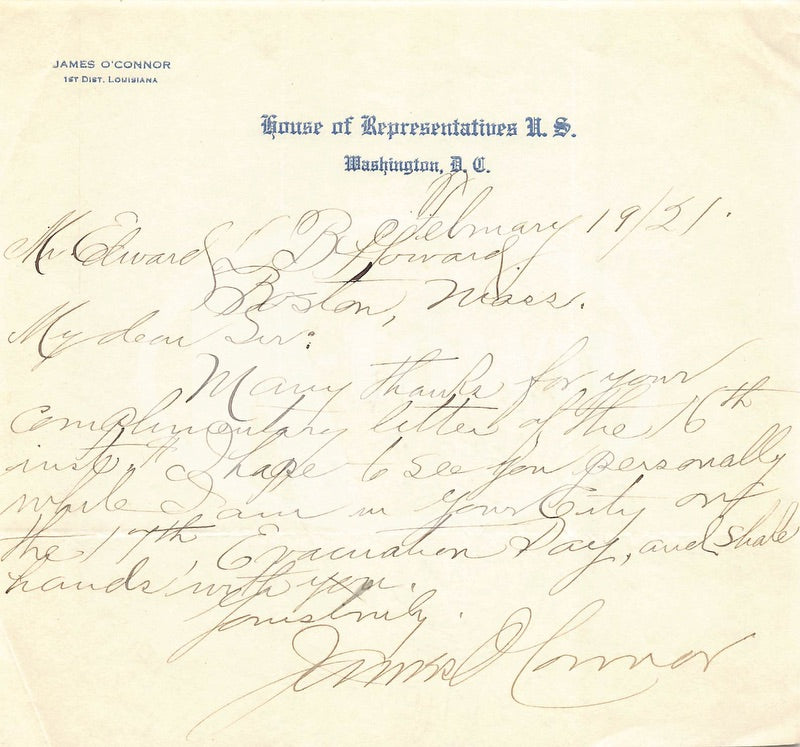 JAMES O'CONNOR
1ST DIST. LOUISIANA
House of Representatives U. S.
Washington, D. C.
February 19/21.
Mr. Edward L B Howard,
Boston, Mass.
My dear Sir:
Many thanks for your
complimentary letter of the 16th
inst. I hope to see you personally
while I am in your City on
the 17th, Evacuation Day, and shake
hands with you.
Yours truly.
James O'Connor